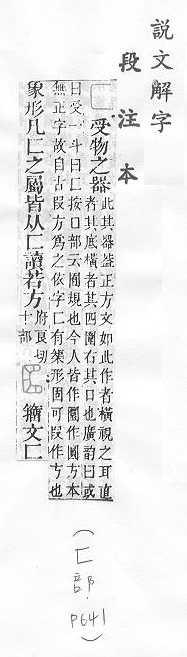 說文解字
段注本
匚 受物之器
此其器葢正方文如此作者橫視之耳直
者其底橫者其四圍右其口也廣韵曰或
曰受一斗曰匚按口部云圜規也今人皆作圓作圓方本
無正字故自古叚方爲之依字匚有榘形固可叚作方也
象形凡匚之屬皆从匚讀若方
府良切
十部
籒文匚
(匚部. P641)